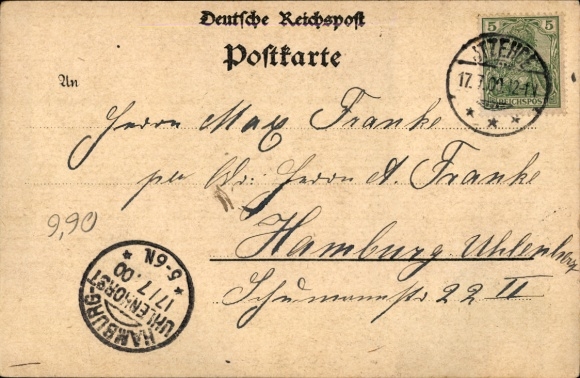 Deutsche Reichspost
Postkarte
An
5 5
REICHSPOST
17.7.00 12-1V
Herrn Max Franke
per Adr. Herrn A. Franke
Hamburg Uhlenhorst
Schumannstr 22 II
9,90
HAMBURG-UHLENHORST
17/7.00
5-6N